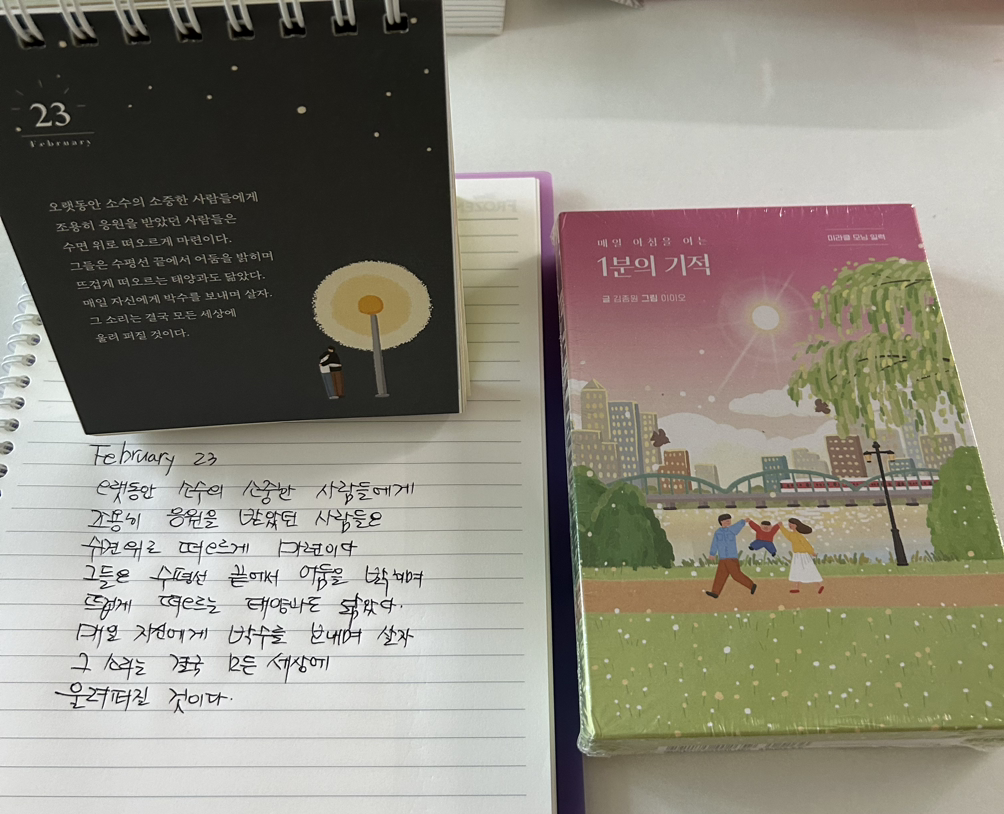 23
February
오랫동안 소수의 소중한 사람들에게
조용히 응원을 받았던 사람들은
수면 위로 떠오르게 마련이다.
그들은 수평선 끝에서 어둠을 밝히며
뜨겁게 떠오르는 태양과도 닮았다.
매일 자신에게 박수를 보내며 살자.
그 소리는 결국 모든 세상에
울려 퍼질 것이다.
FROZEN
February 23
오랫동안 소수의 소중한 사람들에게
조용히 응원을 받았던 사람들은
수면위로 떠오르게 마련이다
그들은 수평선 끝에서 어둠을 밝히며
뜨겁게 떠오르는 태양과도 닮았다.
매일 자신에게 박수를 보내며 살자
그 소리는 결국 모든 세상에
울려퍼질 것이다.
매일 아침을 여는
1분의 기적
글 김종원 그림 이미오
미라클 모닝 일력